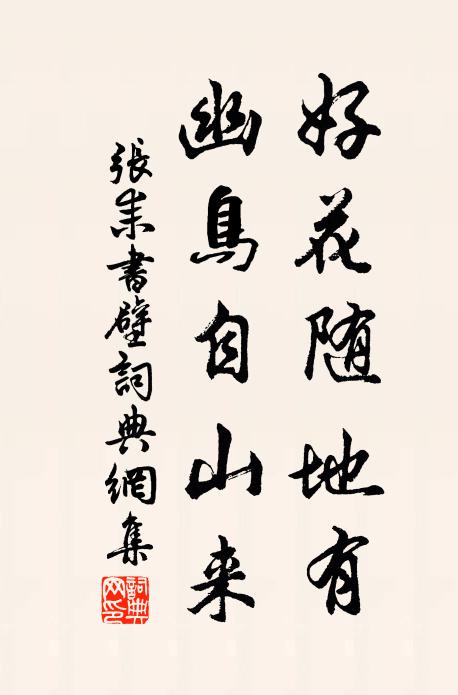 好花随地有
幽鳥自山来
張耒書壁詞典網集
詞典網印